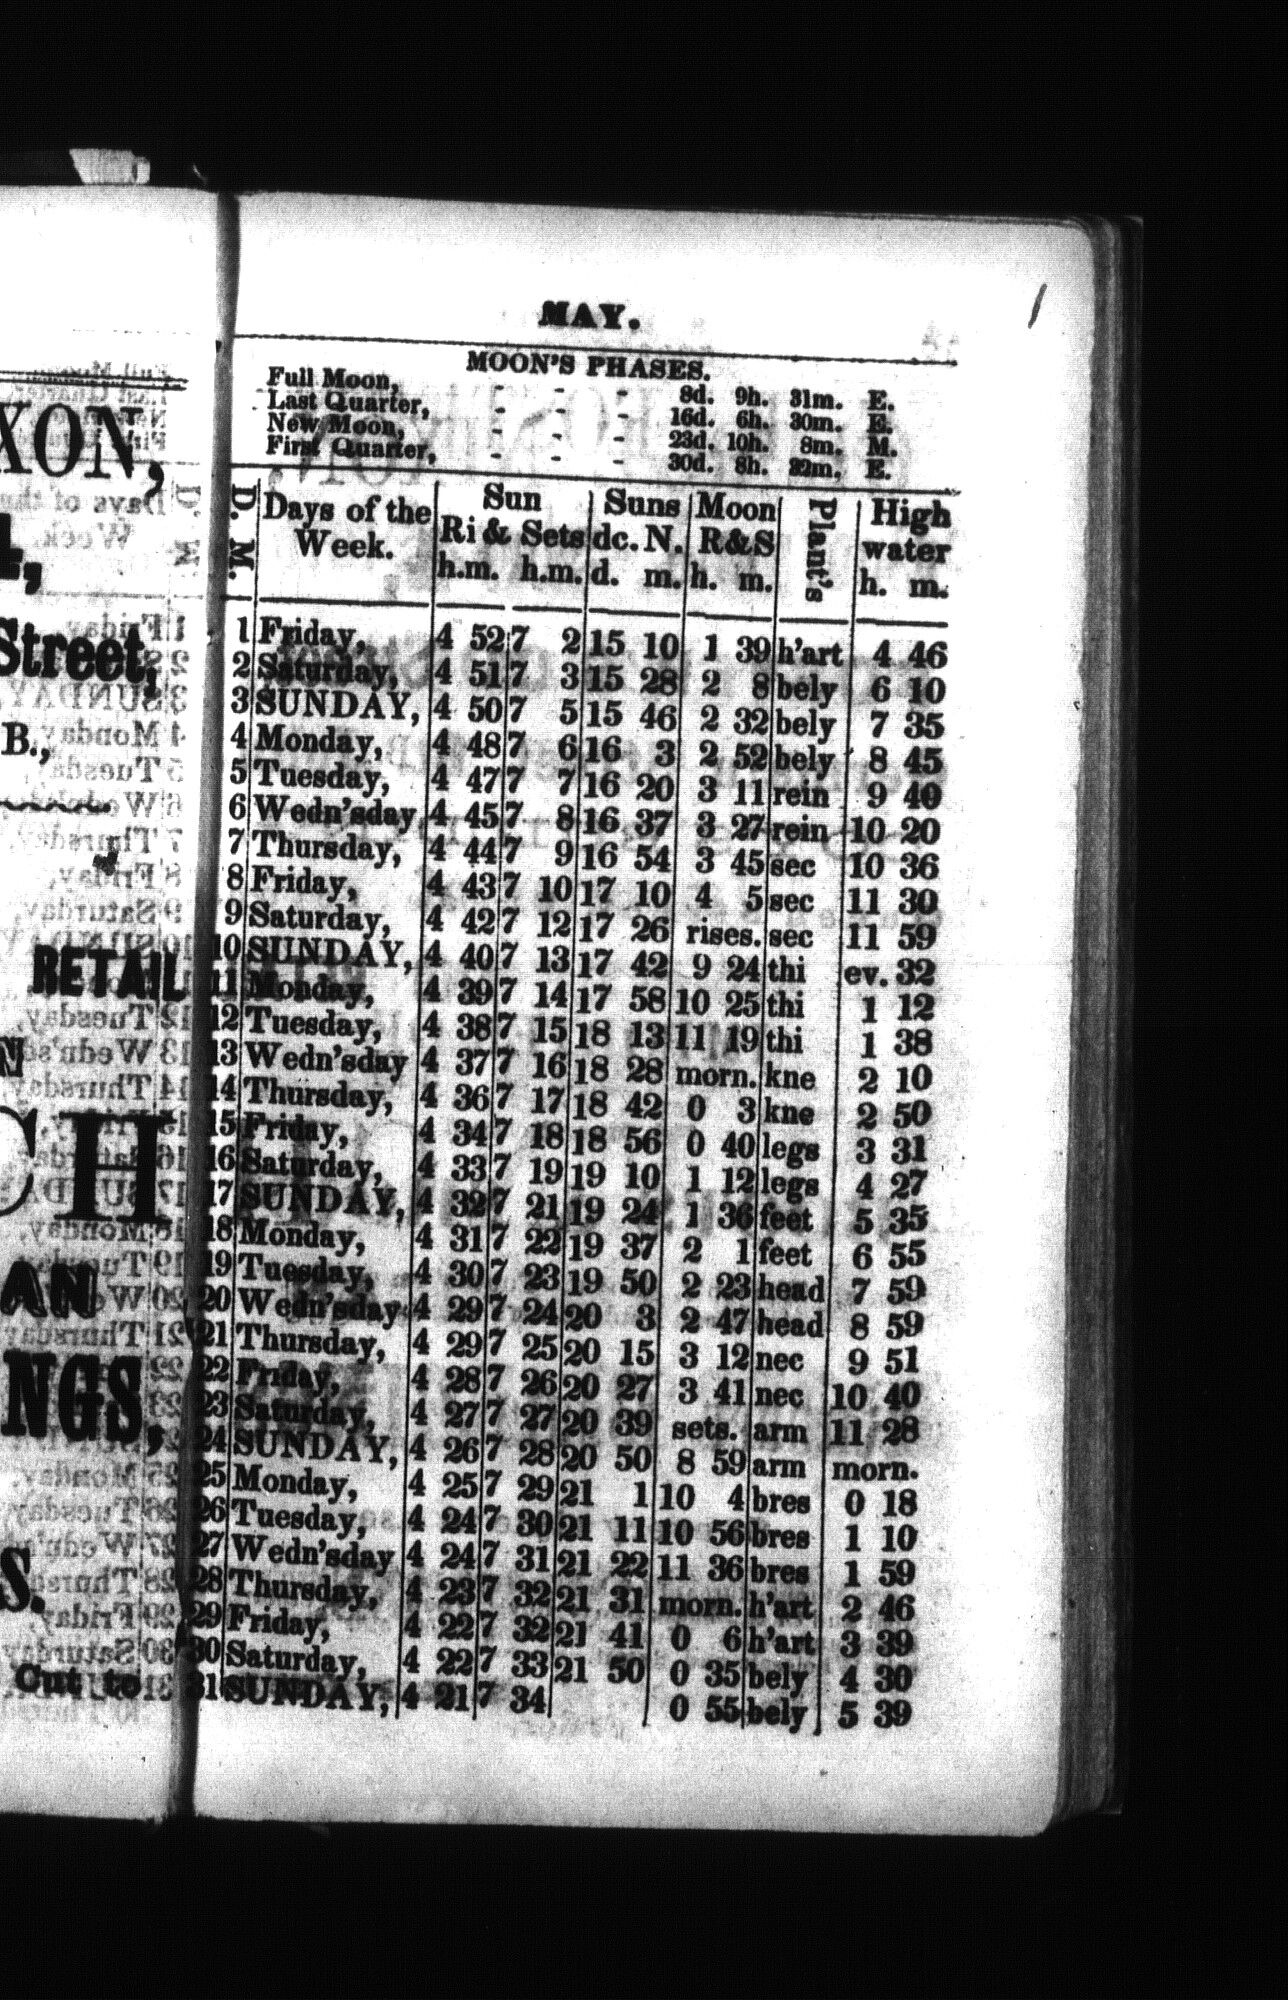 XON,
Street,
B.,
RETAIL
N
CH
AN
NGS,
S.
Cut to
MAY.
MOON'S PHASES.
Full Moon, - - - 8d. 9h. 31m. E.
Last Quarter, - - - 16d. 6h. 30m. E.
New Moon, - - - 23d. 10h. 8m. M.
First Quarter, - - - 30d. 8h. 22m. E.
D. M. Days of the Week. Sun Ri & Sets h.m. h.m. Suns dc. N. d. m. Moon R&S h. m. Plant's High water h. m.
1 Friday, 4 52 7 2 15 10 1 39 h'art 4 46
2 Saturday, 4 51 7 3 15 28 2 8 bely 6 10
3 SUNDAY, 4 50 7 5 15 46 2 32 bely 7 35
4 Monday, 4 48 7 6 16 3 2 52 bely 8 45
5 Tuesday, 4 47 7 7 16 20 3 11 rein 9 40
6 Wedn'sday 4 45 7 8 16 37 3 27 rein 10 20
7 Thursday, 4 44 7 9 16 54 3 45 sec 10 36
8 Friday, 4 43 7 10 17 10 4 5 sec 11 30
9 Saturday, 4 42 7 12 17 26 rises. sec 11 59
10 SUNDAY, 4 40 7 13 17 42 9 24 thi ev. 32
11 Monday, 4 39 7 14 17 58 10 25 thi 1 12
12 Tuesday, 4 38 7 15 18 13 11 19 thi 1 38
13 Wedn'sday 4 37 7 16 18 28 morn. kne 2 10
14 Thursday, 4 36 7 17 18 42 0 3 kne 2 50
15 Friday, 4 34 7 18 18 56 0 40 legs 3 31
16 Saturday, 4 33 7 19 19 10 1 12 legs 4 27
17 SUNDAY, 4 32 7 21 19 24 1 36 feet 5 35
18 Monday, 4 31 7 22 19 37 2 1 feet 6 55
19 Tuesday, 4 30 7 23 19 50 2 23 head 7 59
20 Wedn'sday 4 29 7 24 20 3 2 47 head 8 59
21 Thursday, 4 29 7 25 20 15 3 12 nec 9 51
22 Friday, 4 28 7 26 20 27 3 41 nec 10 40
23 Saturday, 4 27 7 27 20 39 sets. arm 11 28
24 SUNDAY, 4 26 7 28 20 50 8 59 arm morn.
25 Monday, 4 25 7 29 21 1 10 4 bres 0 18
26 Tuesday, 4 24 7 30 21 11 10 56 bres 1 10
27 Wedn'sday 4 24 7 31 21 22 11 36 bres 1 59
28 Thursday, 4 23 7 32 21 31 morn. h'art 2 46
29 Friday, 4 22 7 32 21 41 0 6 h'art 3 39
30 Saturday, 4 22 7 33 21 50 0 35 bely 4 30
31 SUNDAY, 4 21 7 34 0 55 bely 5 39